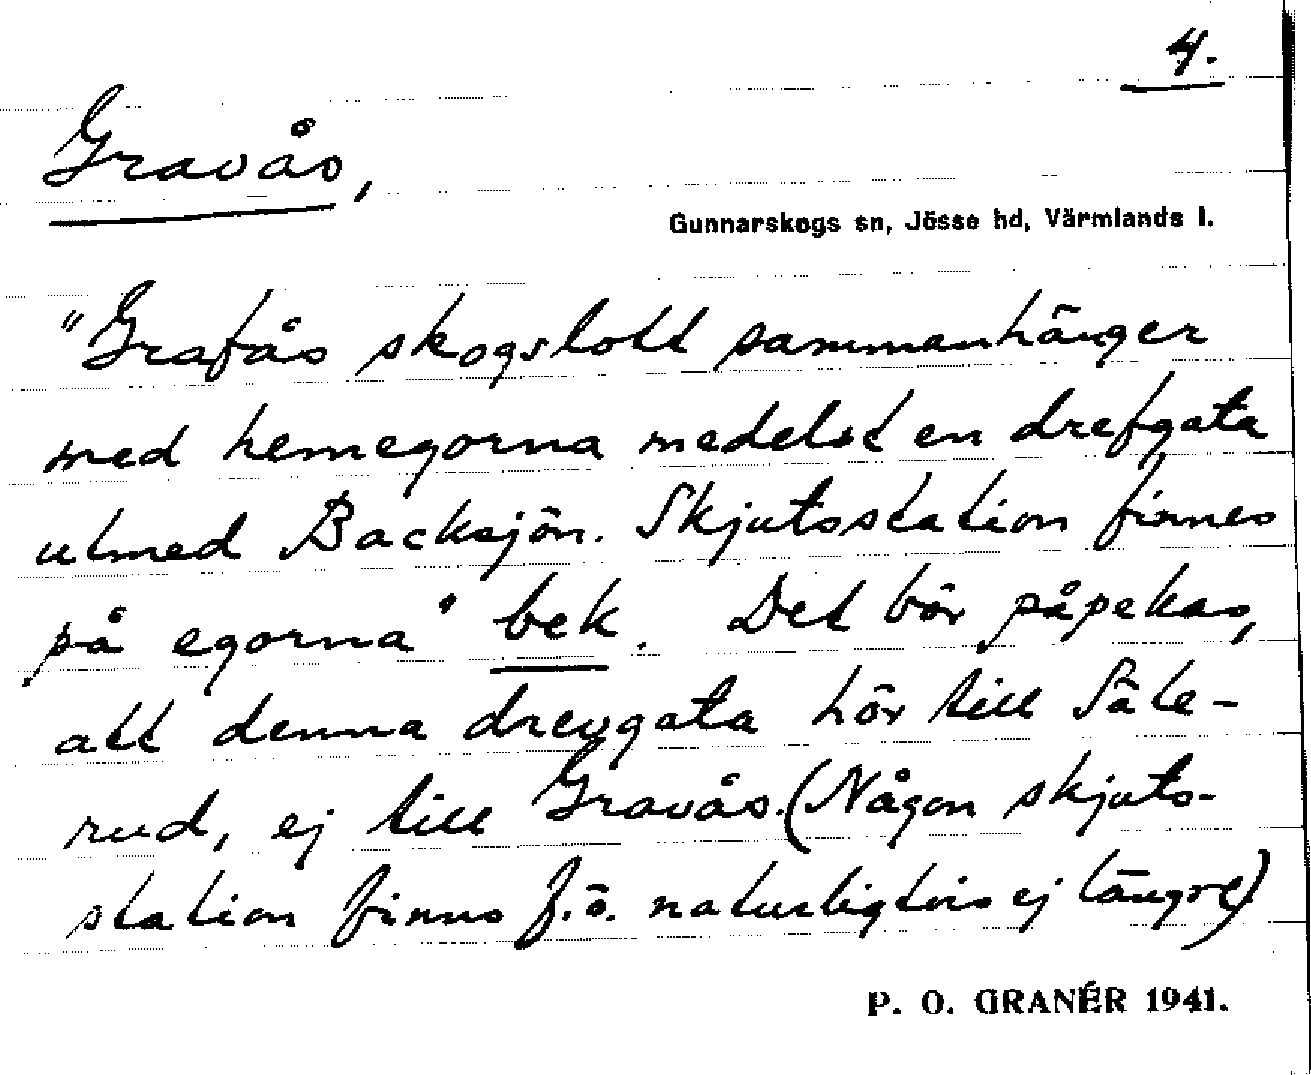 4.
Gravås,
Gunnarskogs sn, Jösse hd, Värmlands l.
"Grafås skogslott sammanhänger
med hemegorna medelst en drefgata
utmed Backsjön. Skjutsstation finnes
på egorna" bek. Det bör påpekas,
att denna drevgata hör till Säte-
rud, ej till Gravås. (Någon skjuts-
station finns f.ö. naturligtvis ej längre)
P. O. GRANÉR 1941.